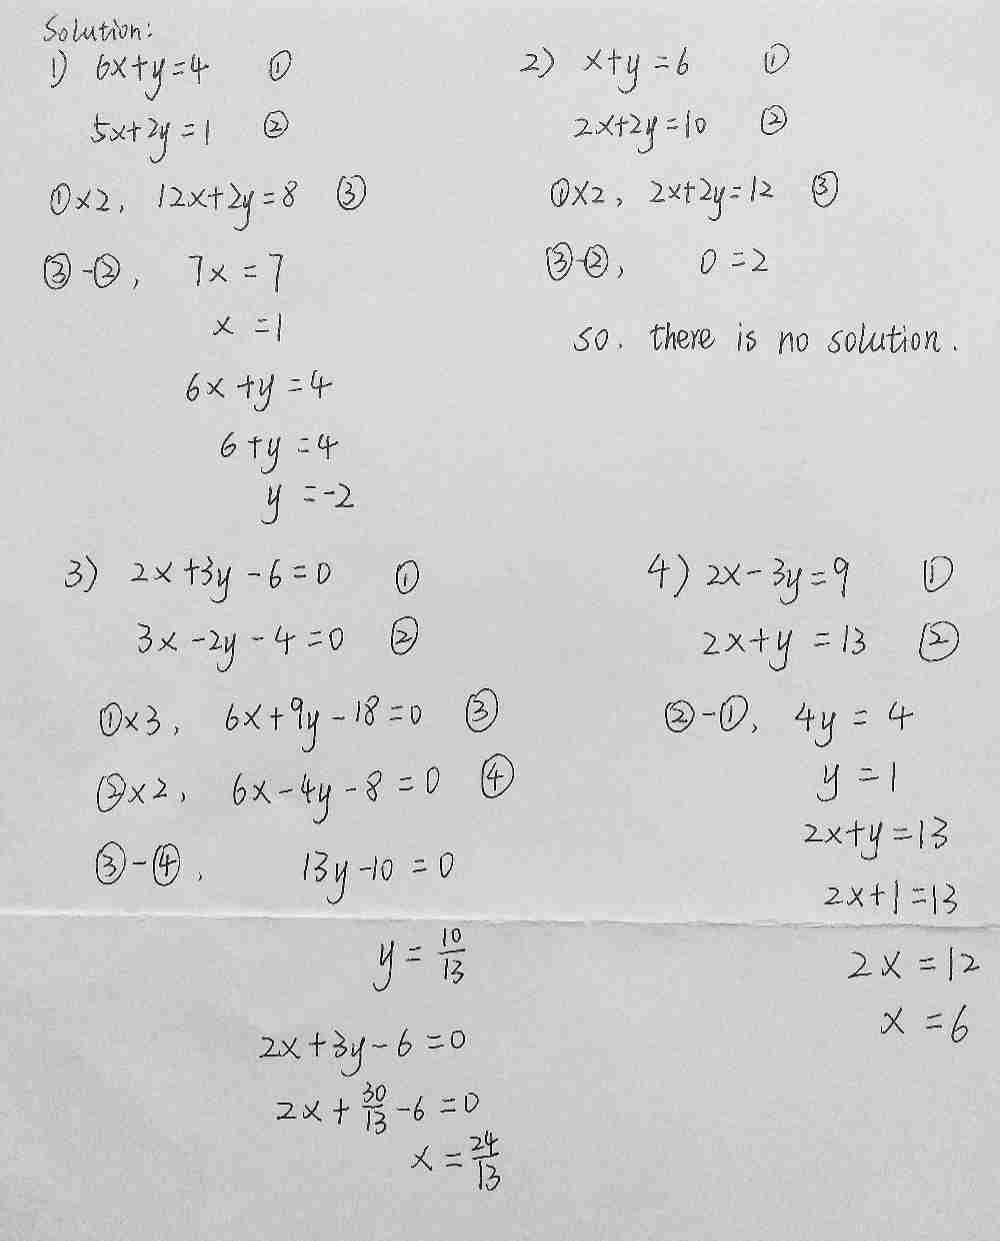 Solution:
1) 6x+y=4 ①
5x+2y=1 ②
①×2, 12x+2y=8 ③
③-②, 7x=7
x=1
6x+y=4
6+y=4
y=-2
2) x+y=6 ①
2x+2y=10 ②
①×2, 2x+2y=12 ③
③-②, 0=2
so. there is no solution.
3) 2x+3y-6=0 ①
3x-2y-4=0 ②
①×3, 6x+9y-18=0 ③
②×2, 6x-4y-8=0 ④
③-④, 13y-10=0
y=10/13
2x+3y-6=0
2x+30/13-6=0
x=24/13
4) 2x-3y=9 ①
2x+y=13 ②
②-①, 4y=4
y=1
2x+y=13
2x+1=13
2x=12
x=6